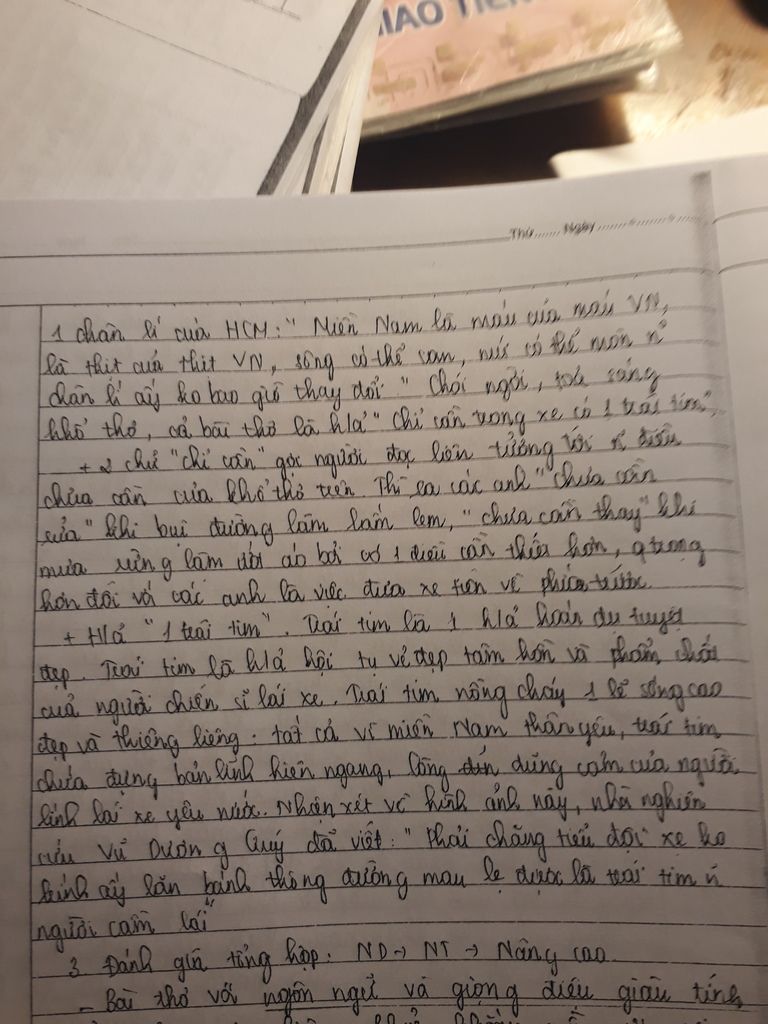 IAO TIẾ
Thứ....... Ngày
1 chân lí của HCM: " Miền Nam là máu của máu VN,
là thịt của thịt VN, sông có thể cạn, núi có thể mòn n~
chân lí ấy ko bao giờ thay đổi." Chói ngời, toả sáng
khổ thơ, cả bài thơ là h/ả " Chỉ cần trong xe có 1 trái tim",
+ 2 chữ "chỉ cần" gợi người đọc liên tưởng tới n~ điều
chưa cần của khổ thơ trên. Thì ra các anh "chưa cần
rửa" khi bụi đường làm lấm lem, "chưa cần thay" khi
mưa rừng làm ướt áo bởi có 1 điều cần thiết hơn, q trọng
hơn đối với các anh là việc đưa xe tiến về phía trước
+ H/ả "1 trái tim". Trái tim là 1 h/ả hoán dụ tuyệt
đẹp. Trái tim là h/ả hội tụ vẻ đẹp tâm hồn và phẩm chất
của người chiến sĩ lái xe. Trái tim nồng cháy 1 lẽ sống cao
đẹp và thiêng liêng: tất cả vì miền Nam thân yêu, trái tim
chứa đựng bản lĩnh hiên ngang, lòng dũng cảm của người
lính lái xe yêu nước. Nhận xét về hình ảnh này, nhà nghiên
cứu Vũ Dương Quý đã viết: " Phải chăng tiểu đội xe ko
kính ấy lăn bánh thông đường mau lẹ được là trái tim n~
người cầm lái"
3. Đánh giá tổng hợp: ND → NT → Nâng cao
- Bài thơ với ngôn ngữ và giọng điệu giàu tính